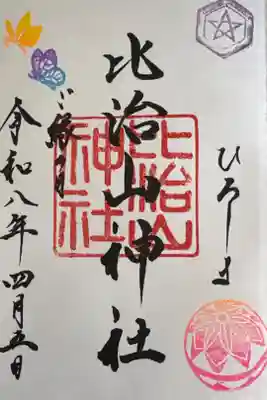 ひろしま
比治山神社
比治山
神社
ご縁
令和八年四月五日